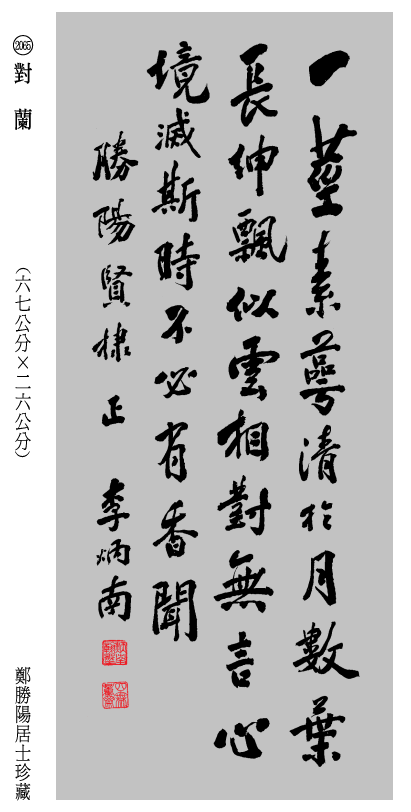 一莖素萼清於月數葉
長紳飄似雲相對無言心
境滅斯時不必有香聞
勝陽賢棣正 李炳南
2065 對蘭 (六七公分×二六公分) 鄭勝陽居士珍藏